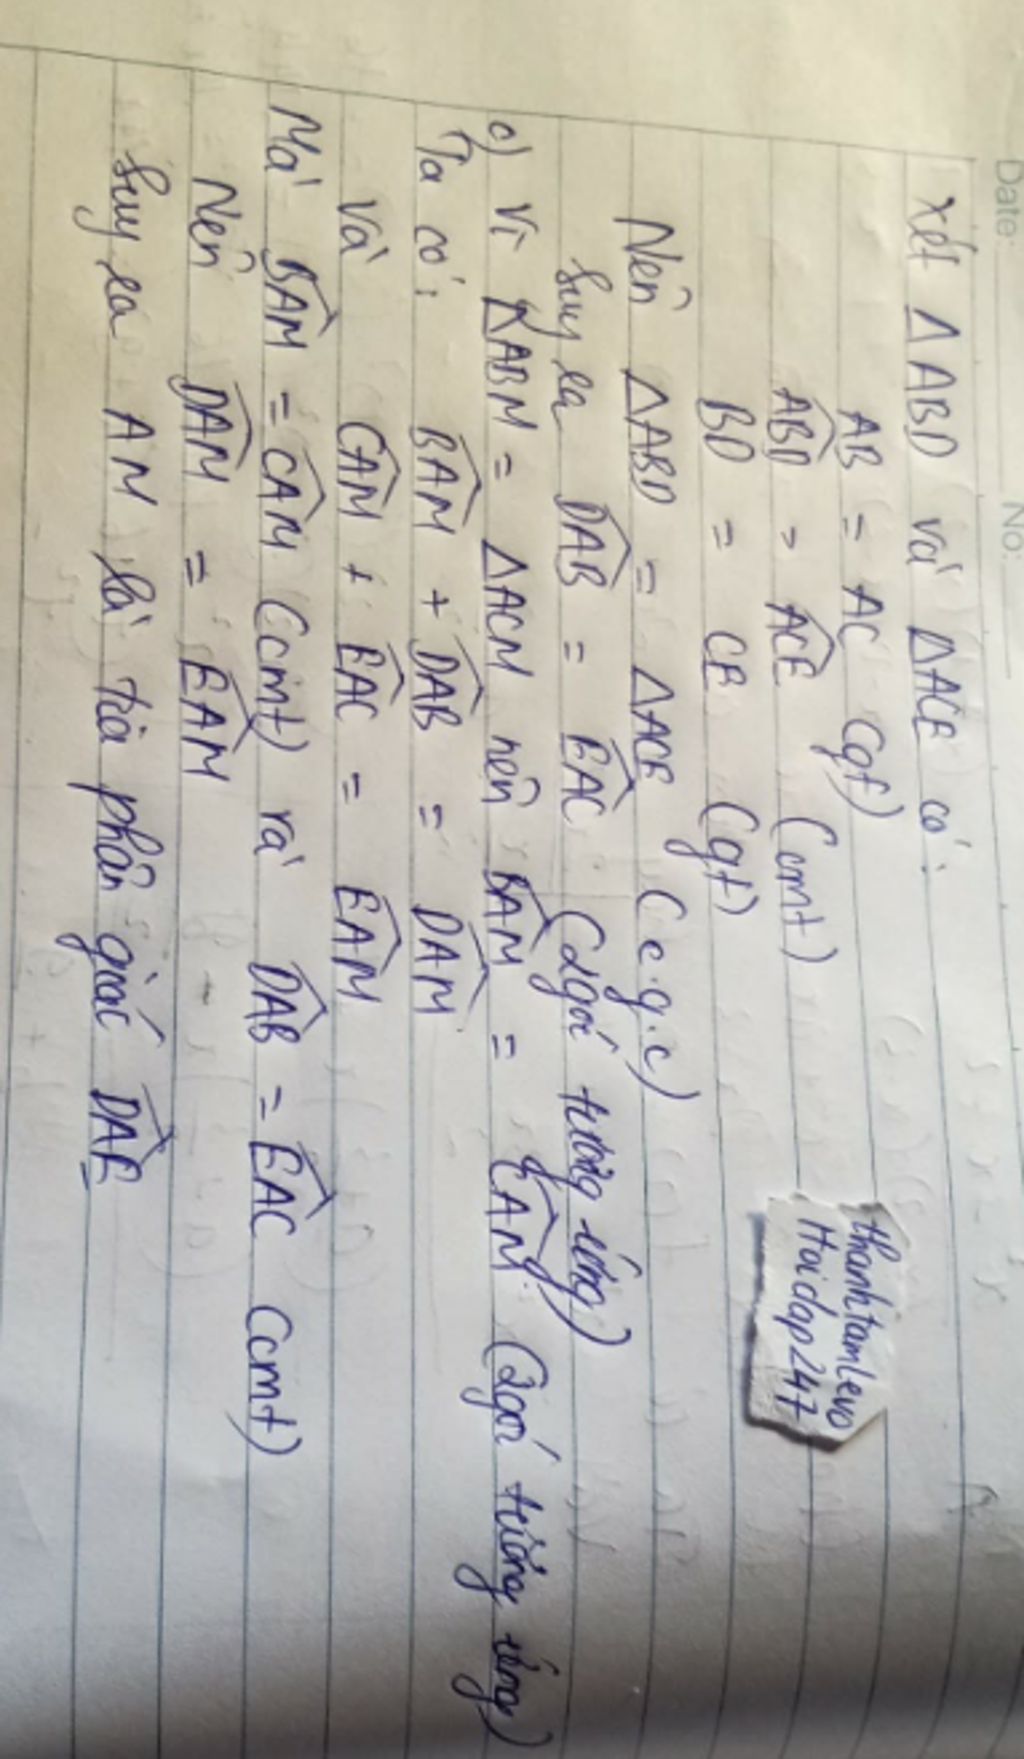 Date: No:
Xét ΔABD và ΔACE có:
AB = AC (gt)
\widehat{ABD} = \widehat{ACE} (cmt)
BD = CE (gt)
Nên ΔABD = ΔACE (c.g.c)
Suy ra \widehat{DAB} = \widehat{EAC} (2góc tương ứng)
c) Vì ΔABM = ΔACM nên \widehat{BAM} = \widehat{CAM} (2góc tương ứng)
Ta có: \widehat{BAM} + \widehat{DAB} = \widehat{DAM}
Và \widehat{CAM} + \widehat{EAC} = \widehat{EAM}
Mà \widehat{BAM} = \widehat{CAM} (cmt) và \widehat{DAB} = \widehat{EAC} (cmt)
Nên \widehat{DAM} = \widehat{EAM}
Suy ra AM là tia phân giác \widehat{DAE}
thanhtamlevo
Hoidap247